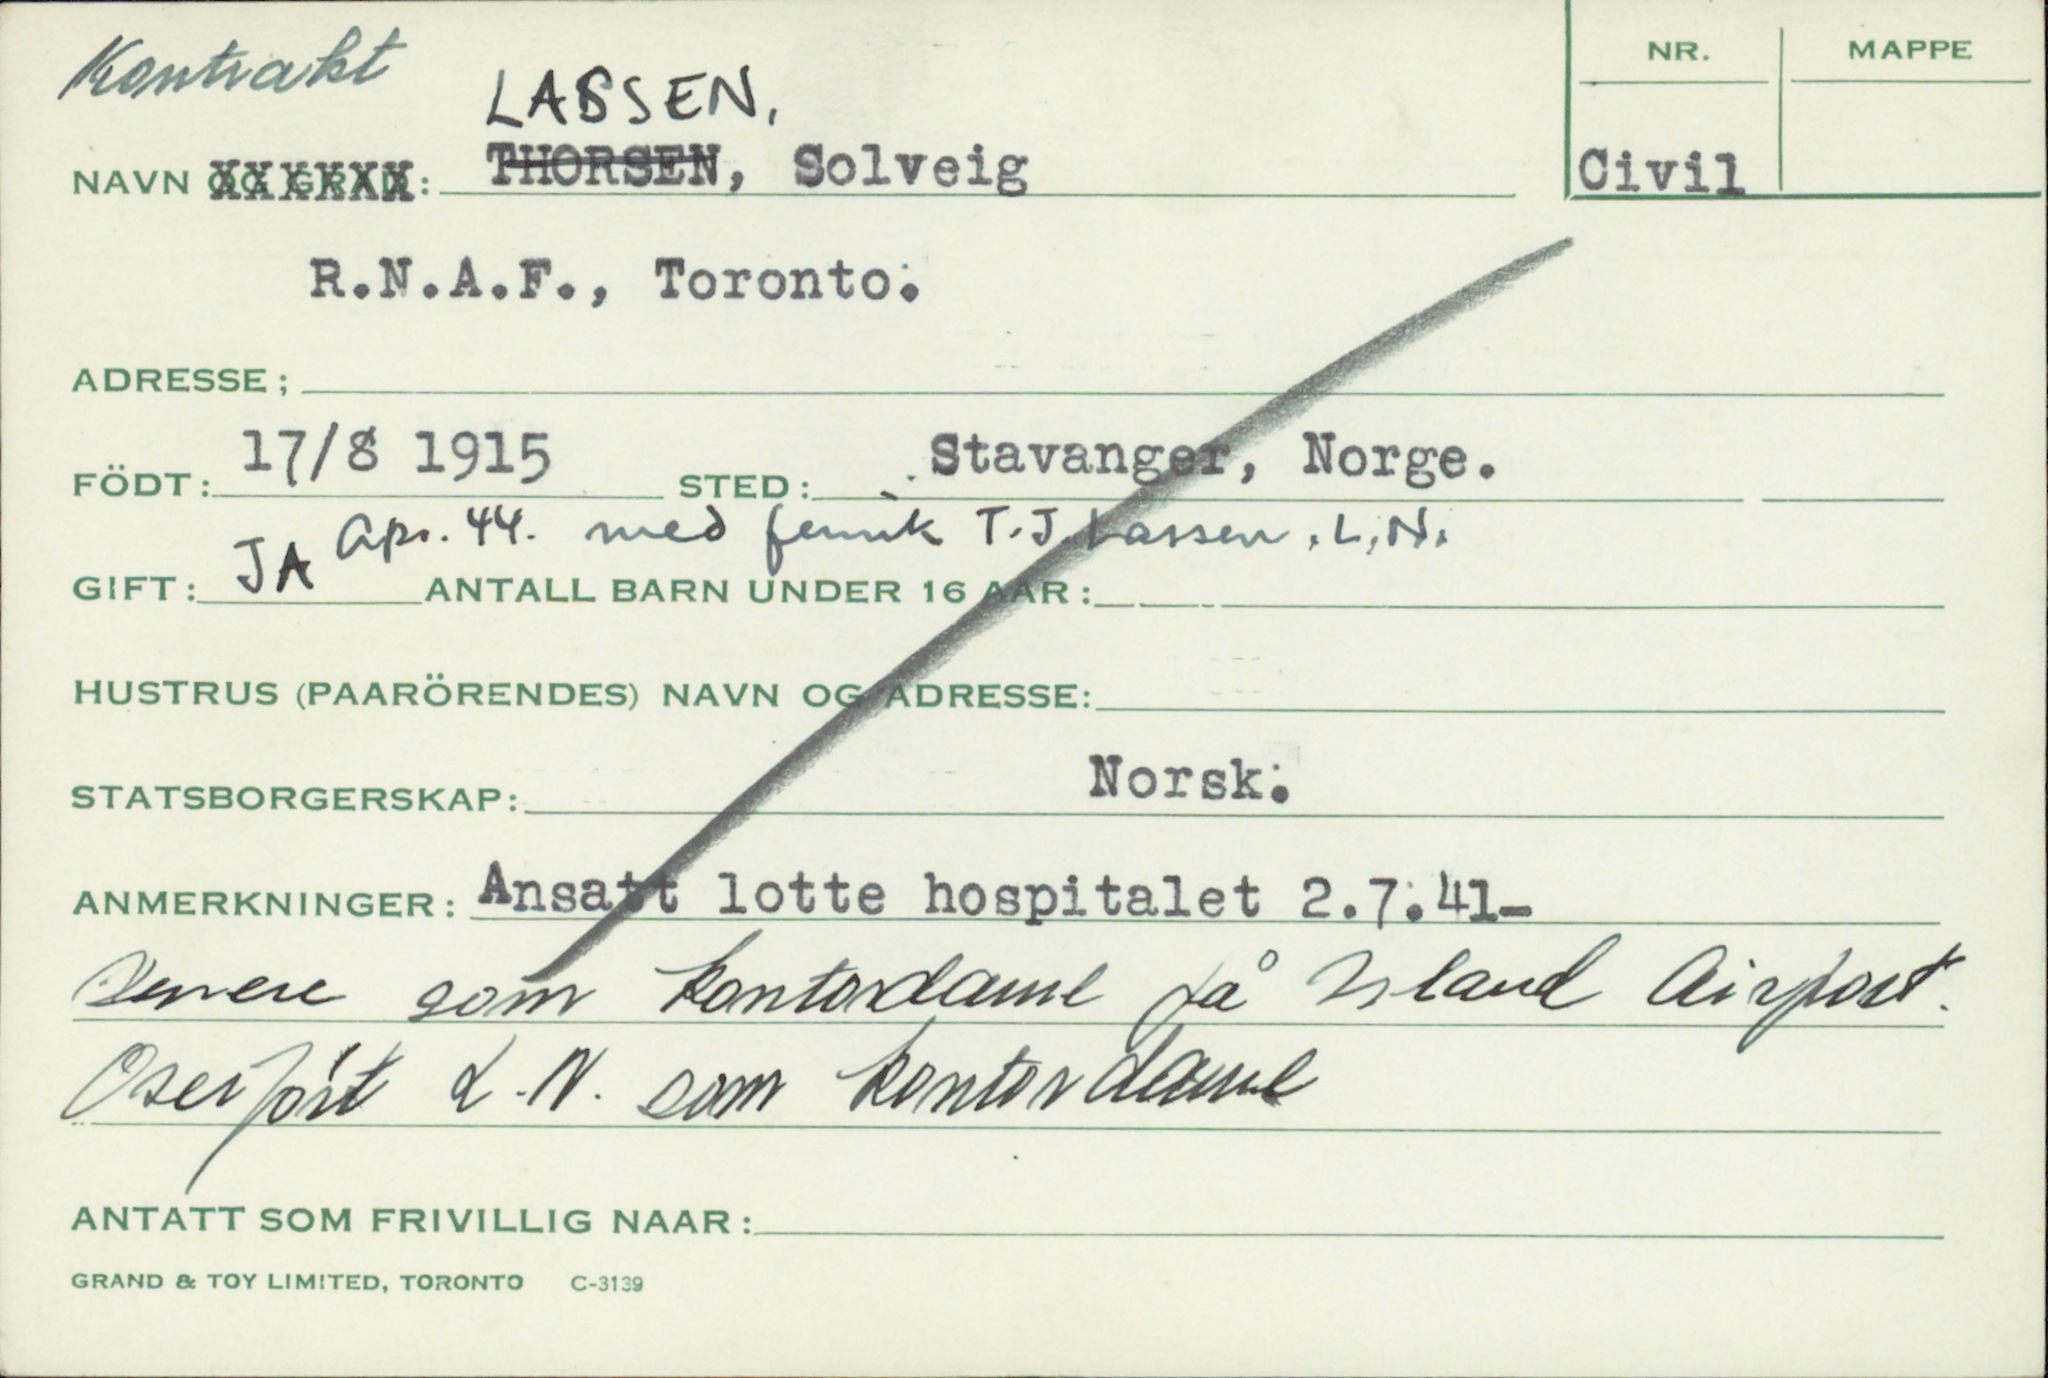 Kontrakt
NR. MAPPE
LASSEN,
NAVN OG GRAD: THORSEN, Solveig
Civil
R.N.A.F., Toronto.
ADRESSE;
FÖDT: 17/8 1915 STED: Stavanger, Norge.
Apr. 44. med fenrik T.J. Lassen, L.N.
GIFT: JA ANTALL BARN UNDER 16 AAR:
HUSTRUS (PAARÖRENDES) NAVN OG ADRESSE:
STATSBORGERSKAP: Norsk.
ANMERKNINGER: Ansatt lotte hospitalet 2.7.41-
Senere som kontordame på Island Airport.
Overført L.N. som kontordame
ANTATT SOM FRIVILLIG NAAR:
GRAND & TOY LIMITED, TORONTO C-3139